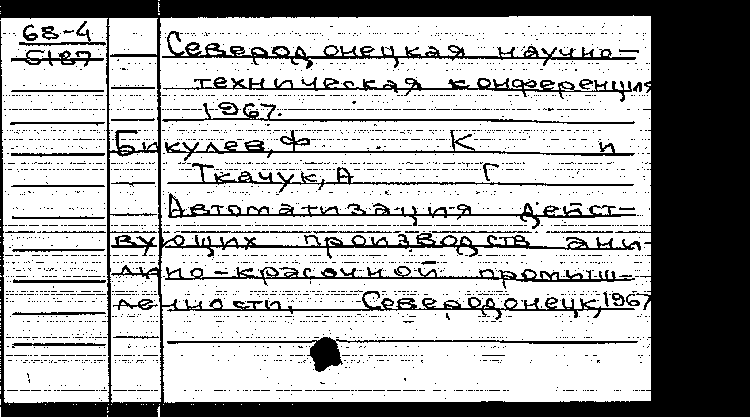 68-4
6187
Северодонецкая научно-
техническая конференция
1967.
Бикулев, Ф К и
Ткачук, А Г
Автоматизация дейст-
вующих производств ани-
лино-красочной промыш-
ленности. Северодонецк, 1967